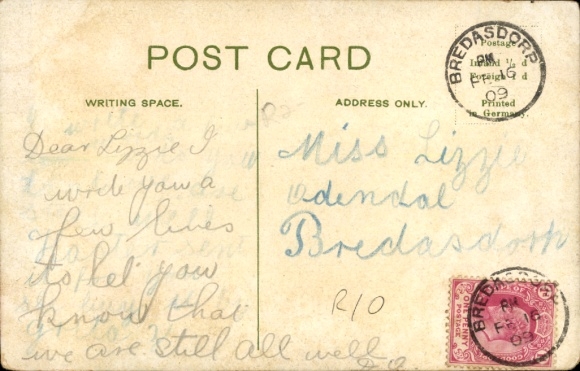 POST CARD
WRITING SPACE.
ADDRESS ONLY.
BREDASDORP
PM
FE 16
09
Postage
Inland ½ d
Foreign 1 d
Printed
in Germany.
Dear Lizzie I
write yow a
few lines
to let you
know that
we are still all well
Miss Lizzie
Odendal
Bredasdorp
R/0
BREDASDORP
PM
FE 16
09
ONE PENNY
POSTAGE